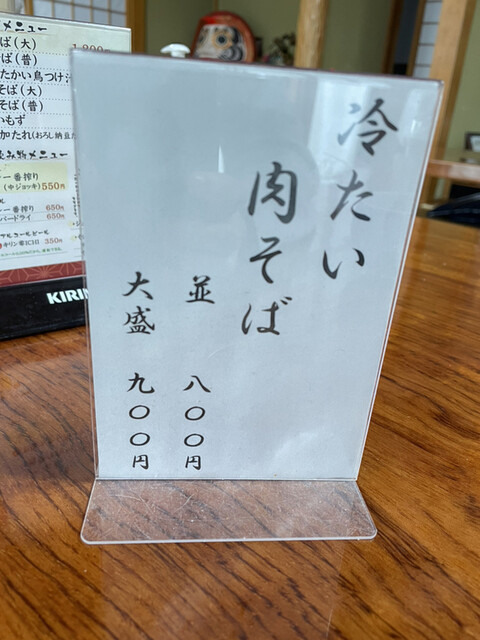 冷たい
肉そば
並 八〇〇円
大盛 九〇〇円
メニュー
そば(大)
そば(普)
たかい鳥つけ
そば(大)
そば(普)
もず
加たれ(おろし納豆
メニュー
一番搾り
(中ジョッキ) 550円
一番搾り 650円
パードライ 650円
キリン零ICHI 350円
KIRIN